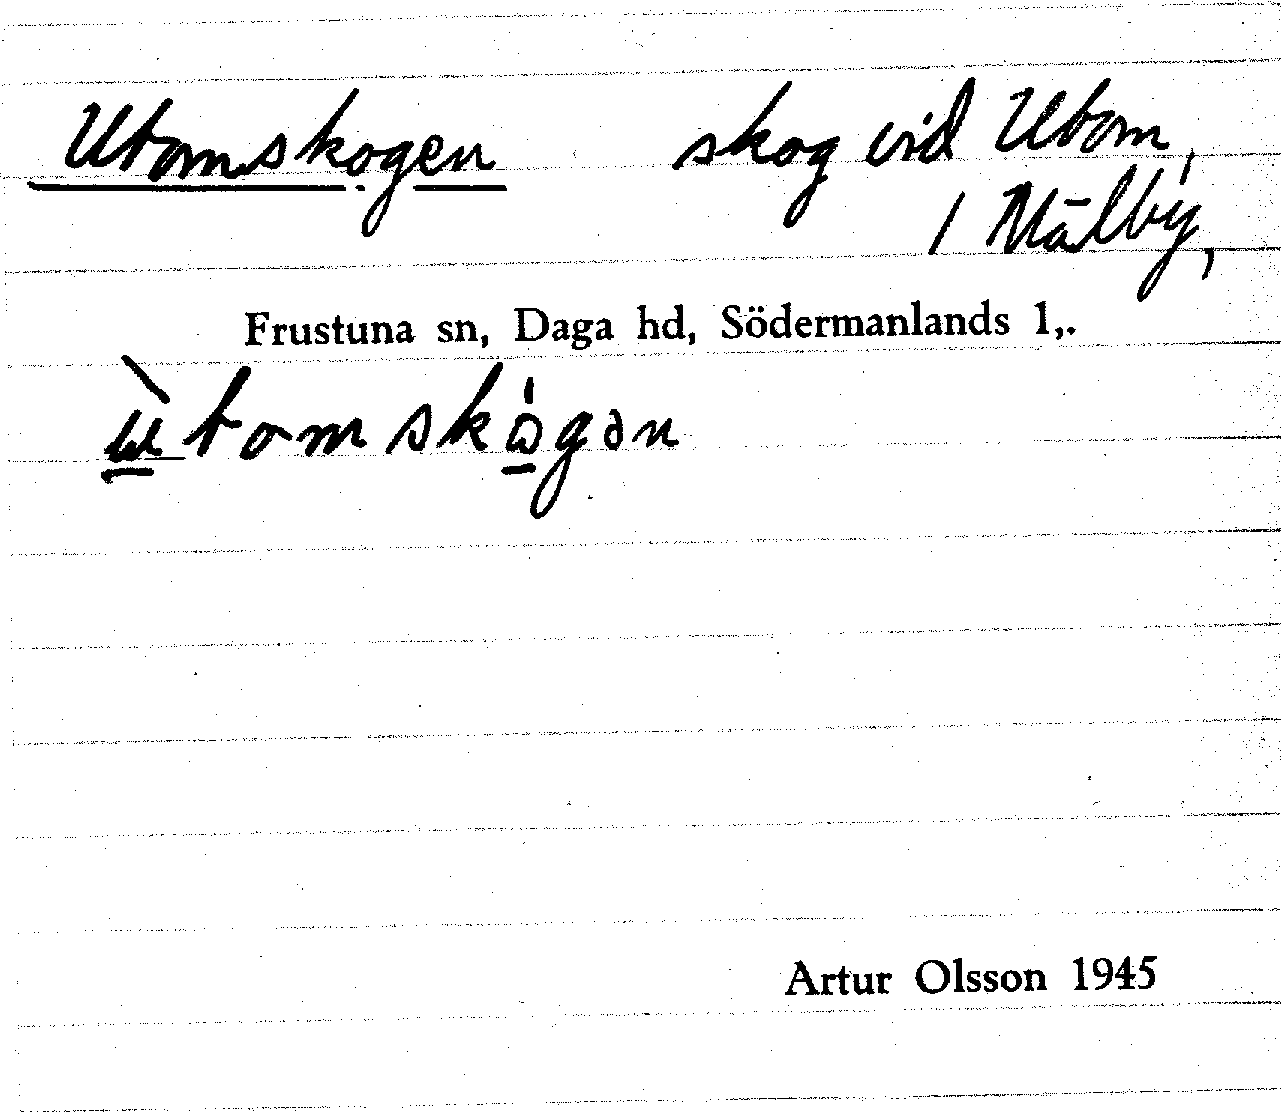 Utomskogen skog vid Utom,
1 Målby,
Frustuna sn, Daga hd, Södermanlands l,.
ù̱tomskό̱gən
Artur Olsson 1945